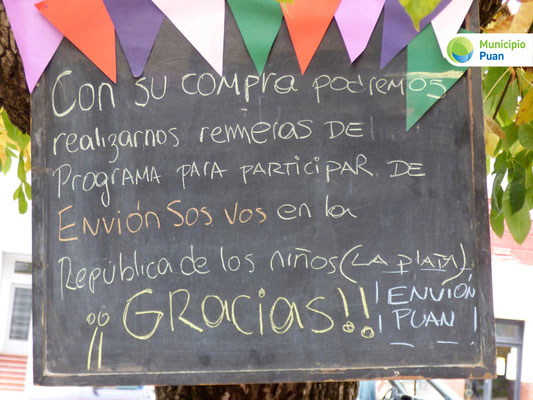 Municipio
Puan
Con su compra podremos
realizarnos remeras DEl
Programa para participar DE
Envión Sos vos en la
República de los niños (LA PLATA).
¡¡GRACIAS!!
¡ENVIÓN
PUAN!